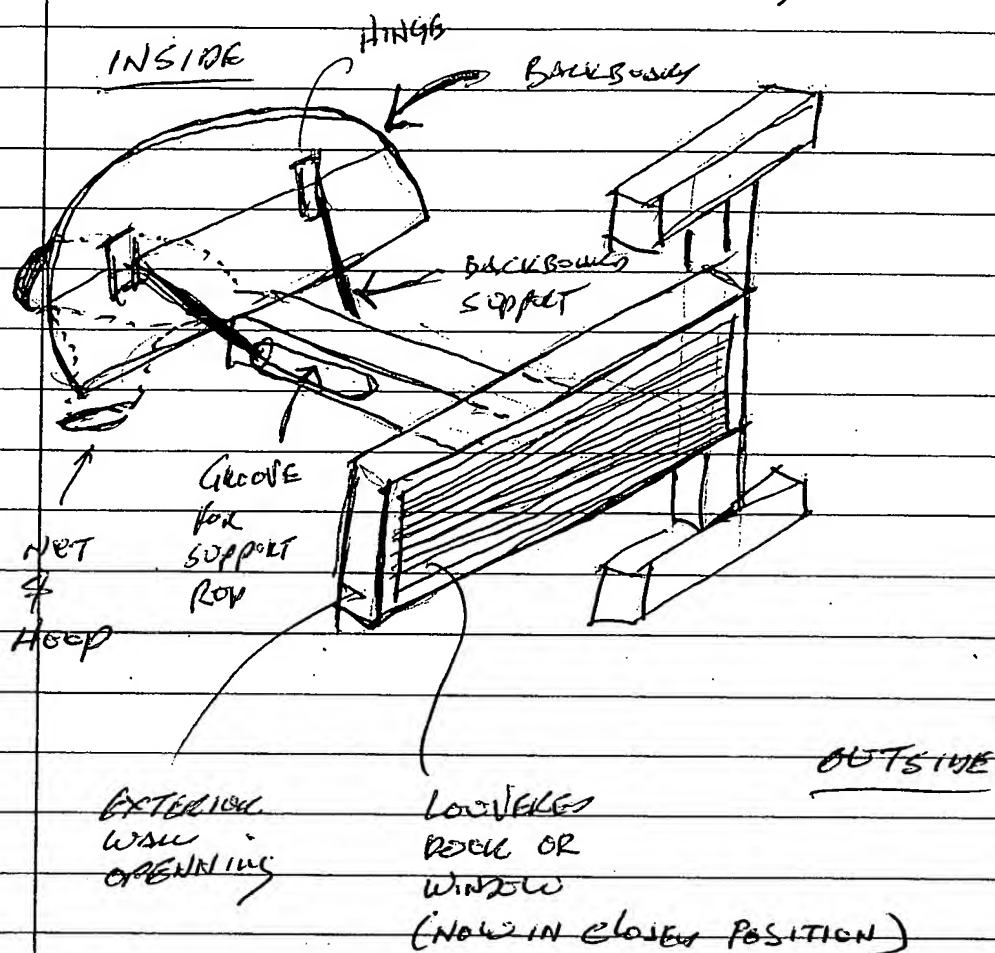 HINGE
INSIDE
BACKBOARD
BACKBOARD
SUPPORT
GROOVE
FOR
SUPPORT
ROD
NET
&
HOOP
OUTSIDE
EXTERIOR
WALL
OPENNING
LOUVERED
DOOR OR
WINDOW
(NOW IN CLOSED POSITION)